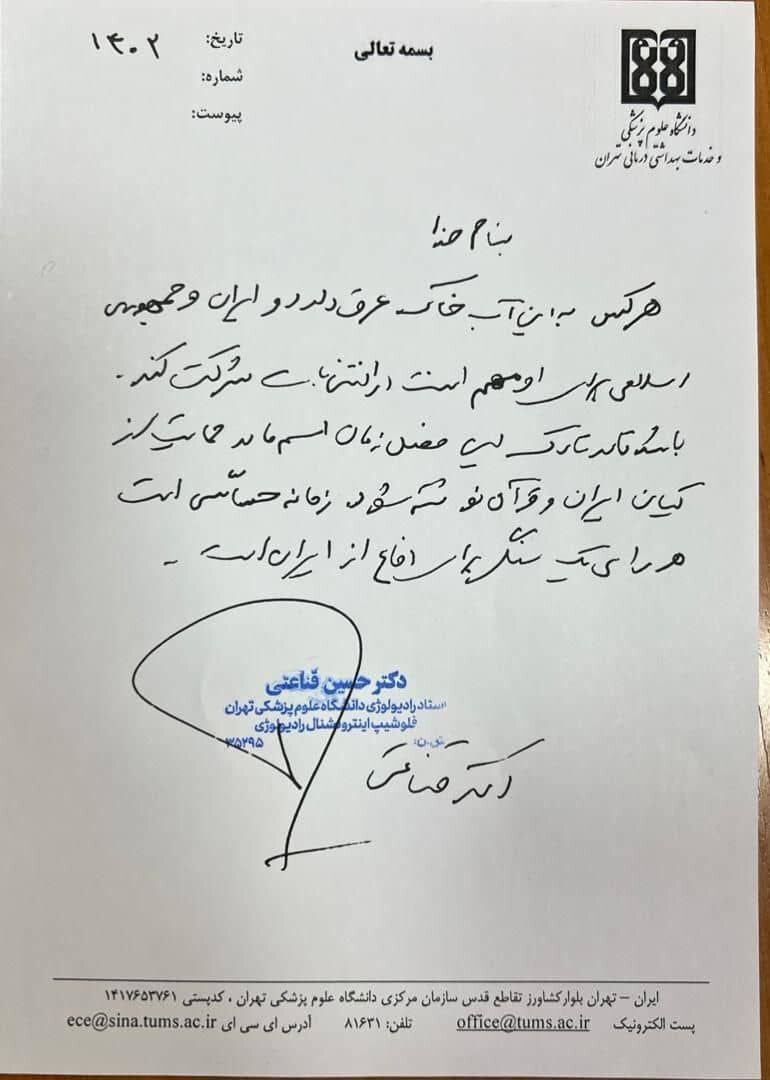 بسمه تعالی
دانشگاه علوم پزشکی
و خدمات بهداشتی درمانی تهران
تاریخ: ۱۴۰۲
شماره:
پیوست:
بنام خدا
هر کس به این آب خاک عرق دارد و ایران و جمهوری
اسلامی برای او مهم است در انتخابات شرکت کند.
باشد که در تارک این زمان اسم ما در حمایت از
کیان ایران و قرآن نوشته شود. زمانه حساسی است
هر رای یک سنگی برای دفاع از ایران است -
دکتر حسین قناعتی
استاد رادیولوژی دانشگاه علوم پزشکی تهران
فلوشیپ اینترونشنال رادیولوژی
۳۵۲۹۵
دکتر قناعتی
ایران – تهران بلوار کشاورز تقاطع قدس سازمان مرکزی دانشگاه علوم پزشکی تهران ، کدپستی ۱۴۱۷۶۵۳۷۶۱
پست الکترونیک office@tums.ac.ir تلفن: ۸۱۶۳۱ آدرس ای سی ای ece@sina.tums.ac.ir